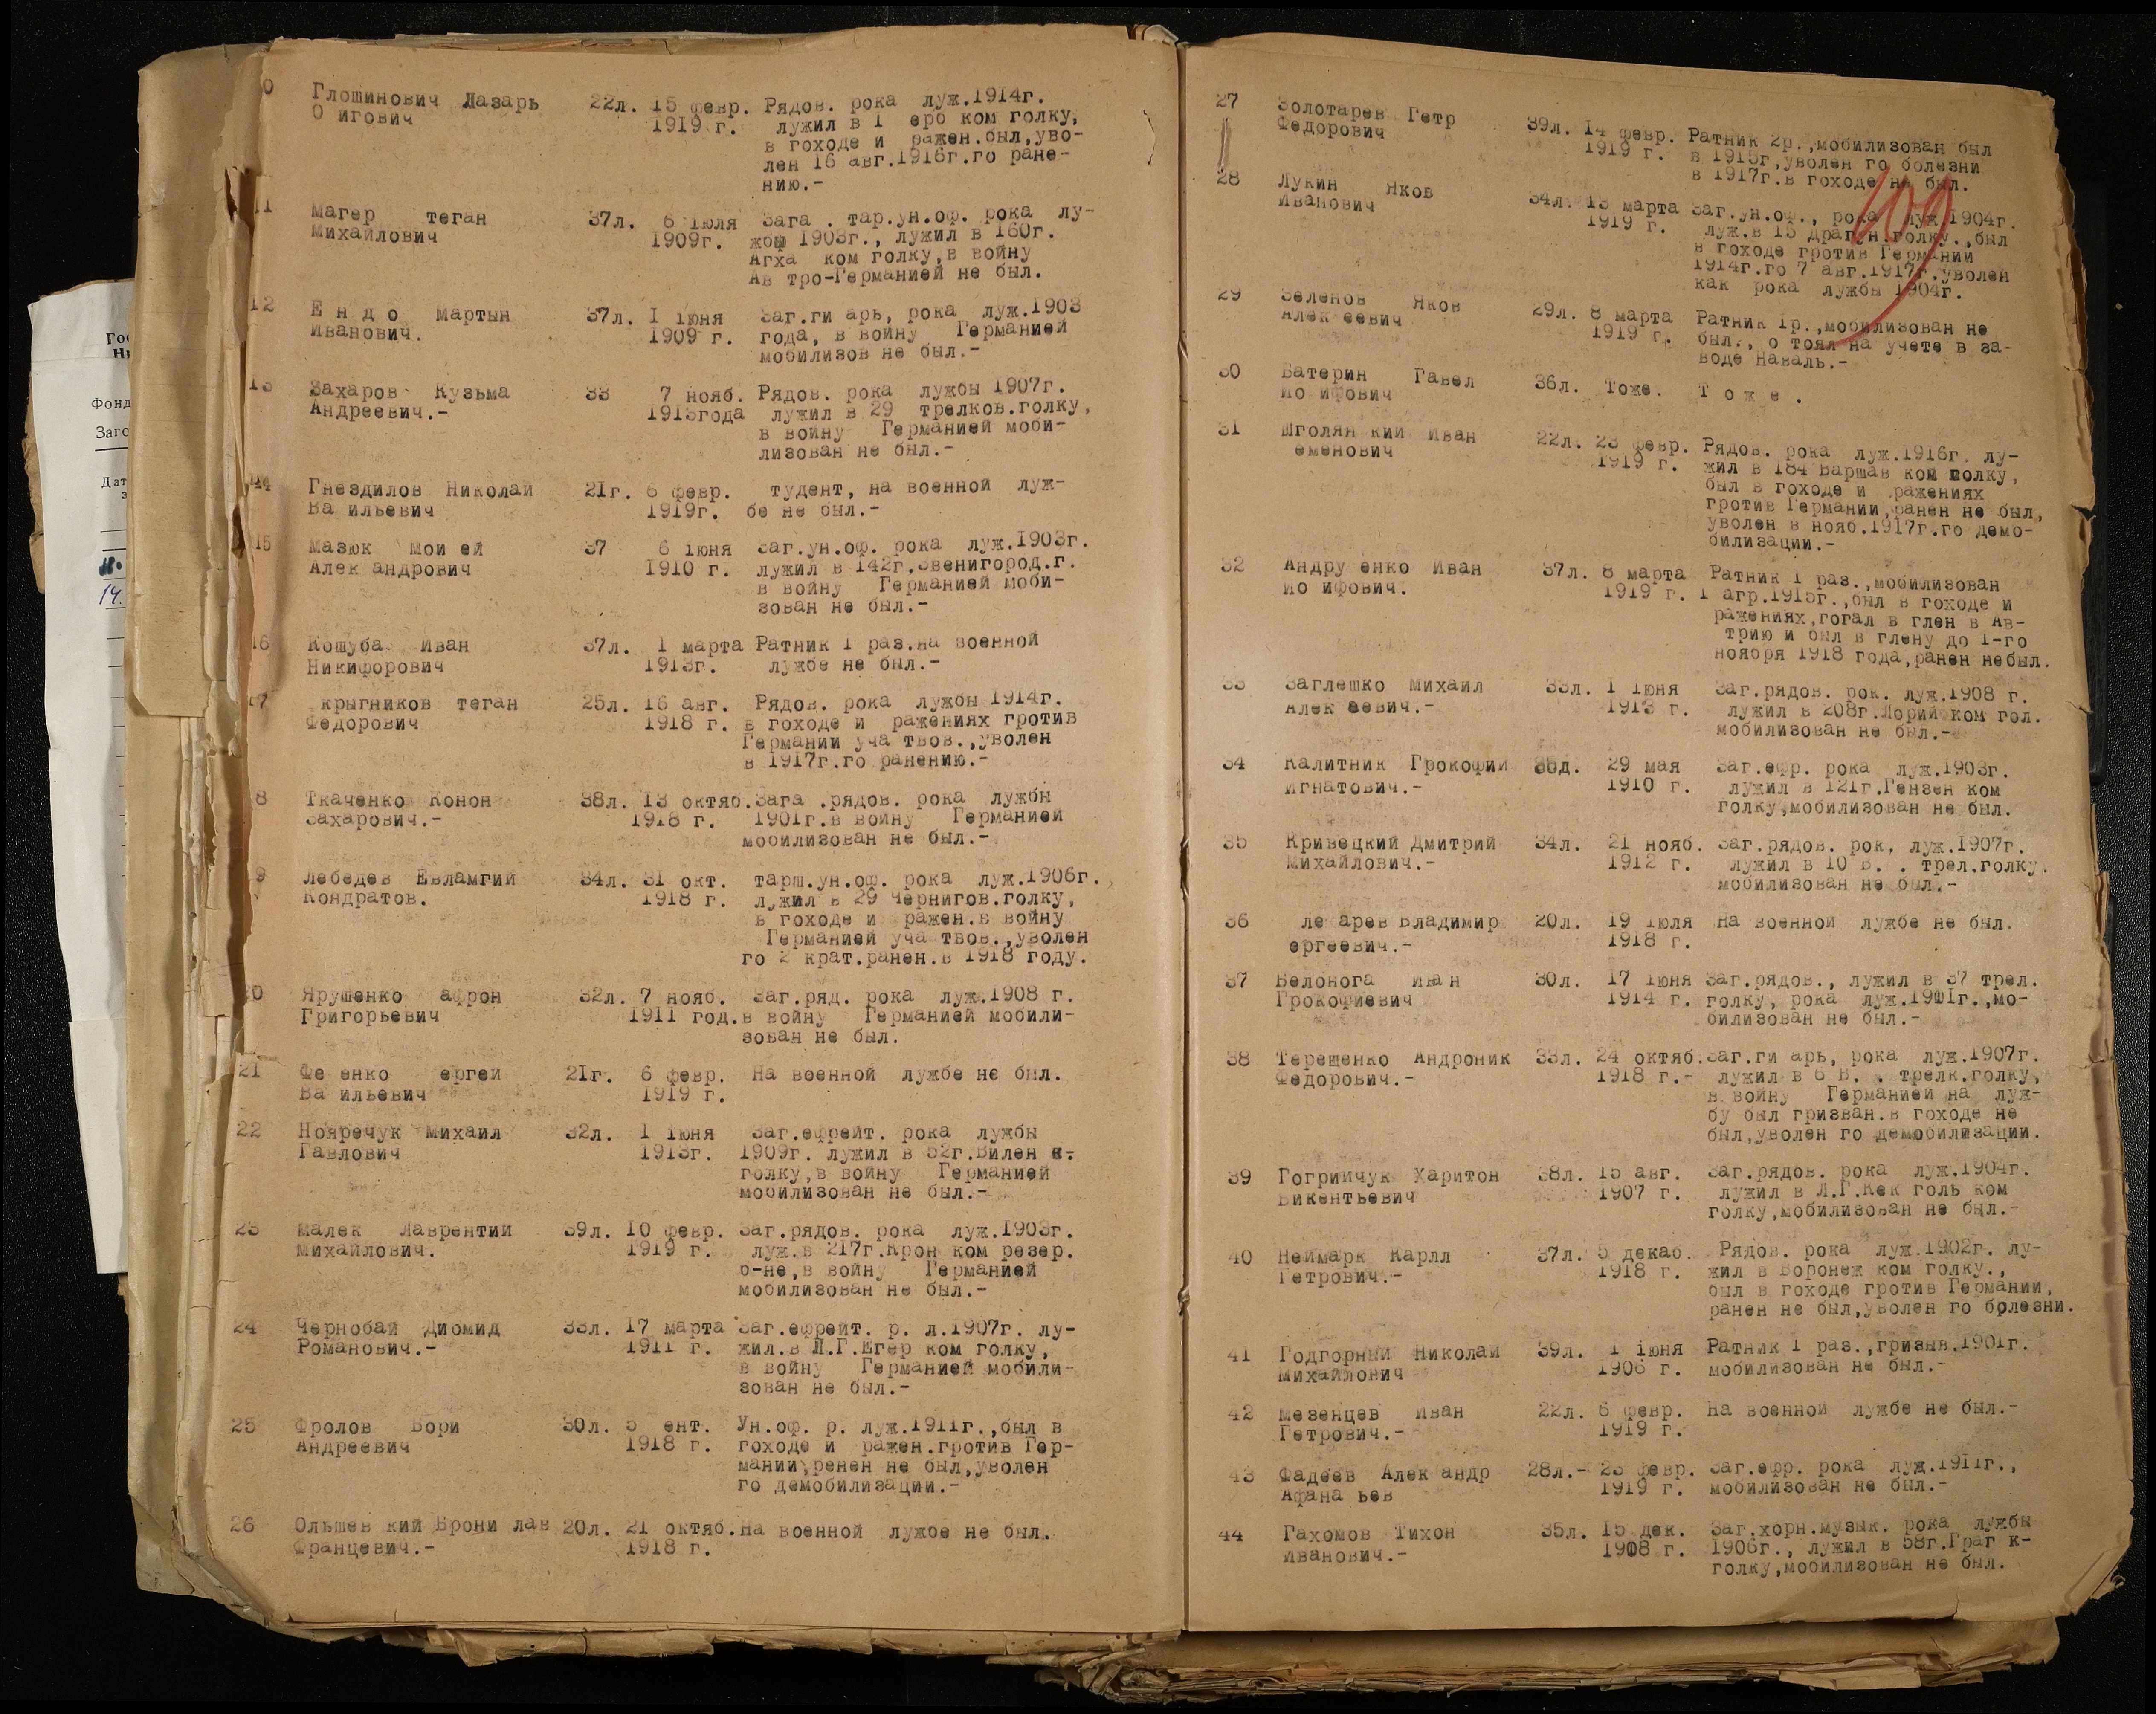 0 Глошинович Лазарь 22л. 15 февр. Рядов. рока луж.1914г.
О игович 1919 г. лужил в 1 ерб ком голку,
в гоходе и ражен.был,уво-
лен 16 авг.1916г.го ране-
нию.-
11 Магер теган 37л. 6 июля Зага . тар.ун.оф. рока лу-
Михайлович 1909г. жбы 1903г., лужил в 160г.
Агха ком голку,в войну
Ав тро-Германией не был.
12 Е н д о Мартын 37л. I июня Заг.ги арь, рока луж.1903
Иванович. 1909 г. года, в войну Германией
мобилизов не был.-
13 Захаров Кузьма 33 7 нояб. Рядов. рока лужбы 1907г.
Андреевич.- 1913года лужил в 29 трелков.голку,
в войну Германией моби-
лизован не был.-
14 Гнездилов Николай 21г. 6 февр. тудент, на военной луж-
Ва ильевич 1919г. бе не был.-
15 Мазюк Мои ей 37 6 июня Заг.ун.оф. рока луж.1903г.
Алек андрович 1910 г. лужил в 142г.Звенигород.г.
в войну Германией моби-
зован не был.-
16 Кошуба Иван 37л. 1 марта Ратник 1 раз.на военной
Никифорович 1913г. лужбе не был.-
17 крыгников теган 25л. 16 авг. Рядов. рока лужбы 1914г.
Федорович 1918 г. в гоходе и ражениях гротив
Германии уча твов.,уволен
в 1917г.го ранению.-
8 Ткаченко Конон 38л. 13 октяб.Зага .рядов. рока лужбы
Захарович.- 1918 г. 1901г.в войну Германией
мобилизован не был.-
9 Лебедев Евламгий 34л. 31 окт. тарш.ун.оф. рока луж.1906г.
Кондратов. 1918 г. лужил в 29 Чернигов.голку,
в гоходе и ражен.в войну
Германией уча твов.,уволен
го 2 крат.ранен.в 1918 году.
20 Ярушенко афрон 32л. 7 нояб. Заг.ряд. рока луж.1908 г.
Григорьевич 1911 год.в войну Германией мобили-
зован не был.
21 Фе енко ергей 21г. 6 февр. На военной лужбе не был.
Ва ильевич 1919 г.
22 Нояречук Михаил 32л. 1 июня Заг.ефрейт. рока лужбы
Гавлович 1913г. 1909г. лужил в 52г.Вилен к-
голку,в войну Германией
мобилизован не был.-
23 Малек Лаврентий 39л. 10 февр. Заг.рядов. рока луж.1903г.
Михайлович. 1919 г. луж.в 217г.Крон ком резер.
б-не,в войну Германией
мобилизован не был.-
24 Чернобай Диомид 33л. 17 марта Заг.ефрейт. р. л.1907г. лу-
Романович.- 1911 г. жил.в Л.Г.Егер ком голку,
в войну Германией мобили-
зован не был.-
25 Фролов Бори 30л. 5 ент. Ун.оф. р. луж.1911г.,был в
Андреевич 1918 г. гоходе и ражен.гротив Гер-
мании,ренен не был,уволен
го демобилизации.-
26 Ольшев кий Брони лав 20л. 21 октяб.На военной лужбе не был.
Францевич.- 1918 г.
27 Золотарев Гетр 39л. 14 февр. Ратник 2р.,мобилизован был
Федорович 1919 г. в 1915г,уволен го болезни
в 1917г.в гоходе не был.
109
28 Лукин Яков 34л. 13 марта Заг.ун.оф., рока луж.1904г.
Иванович 1919 г. луж.в 15 драгун.голку.,был
в гоходе гротив Германии
1914г.го 7 авг.1917г.уволен
как рока лужбы 1904г.
29 Зеленов Яков 29л. 8 марта Ратник 1р.,мобилизован не
Алек еевич 1919 г. был., о тоял на учете в за-
воде Наваль.-
30 Батерин Гавел 36л. Тоже. Т о ж е .
Ио ифович
31 Шголян кий Иван 22л. 23 февр. Рядов. рока луж.1916г. лу-
еменович 1919 г. жил в 184 Варшав ком полку,
был в гоходе и ражениях
гротив Германии,ранен не был,
уволен в нояб.1917г.го демо-
билизации.-
32 Андру енко Иван 37л. 8 марта Ратник 1 раз.,мобилизован
Ио ифович. 1919 г. 1 агр.1915г.,был в гоходе и
ражениях,гогал в глен в Ав-
трию и был в глену до 1-го
ноября 1918 года,ранен небыл.
33 Заглешко Михаил 33л. 1 июня Заг.рядов. рок. луж.1908 г.
Алек еевич.- 1913 г. лужил в 208г.Лорий ком гол.
мобилизован не был.-
34 Калитник Грокофий 36л. 29 мая Заг.ефр. рока луж.1903г.
Игнатович.- 1910 г. лужил в 121г.Гензен ком
голку,мобилизован не был.
35 Кривецкий Дмитрий 34л. 21 нояб. Заг.рядов. рок. луж.1907г.
Михайлович.- 1912 г. лужил в 10 В. . трел.голку.
мобилизован не был.-
36 ле арев Владимир 20л. 19 июля На военной лужбе не был.
ергеевич.- 1918 г.
37 Белонога Иван 30л. 17 июня Заг.рядов., лужил в 37 трел.
Грокофиевич 1914 г. голку, рока луж.1911г.,мо-
билизован не был.-
38 Терещенко Андроник 33л. 24 октяб.Заг.ги арь, рока луж.1907г.
Федорович.- 1918 г.- лужил в 6 В. . трелк.голку,
в войну Германией на луж-
бу был гризван.в гоходе не
был,уволен го демобилизации.
39 Гогрийчук Харитон 38л. 15 авг. Заг.рядов. рока луж.1904г.
Викентьевич 1907 г. лужил в Л.Г.Кек голь ком
голку,мобилизован не был.-
40 Неймарк Карлл 37л. 5 декаб. Рядов. рока луж.1902г. лу-
Гетрович.- 1918 г. жил в Воронеж ком голку.,
был в гоходе гротив Германии,
ранен не был,уволен го болезни.
41 Годгорный Николай 39л. 1 июня Ратник 1 раз.,гризыв.1901г.
Михайлович 1906 г. мобилизован не был.-
42 Мезенцев Иван 22л. 6 февр. На военной лужбе не был.-
Гетрович.- 1919 г.
43 Фадеев Алек андр 28л.- 23 февр. Заг.ефр. рока луж.1911г.,
Афана ьев 1919 г. мобилизован не был.-
44 Гахомов Тихон 35л. 15 дек. Заг.хорн.музык. рока лужбы
Иванович.- 1908 г. 1906г., лужил в 58г.Граг к-
голку,мобилизован не был.
Фонд
14.